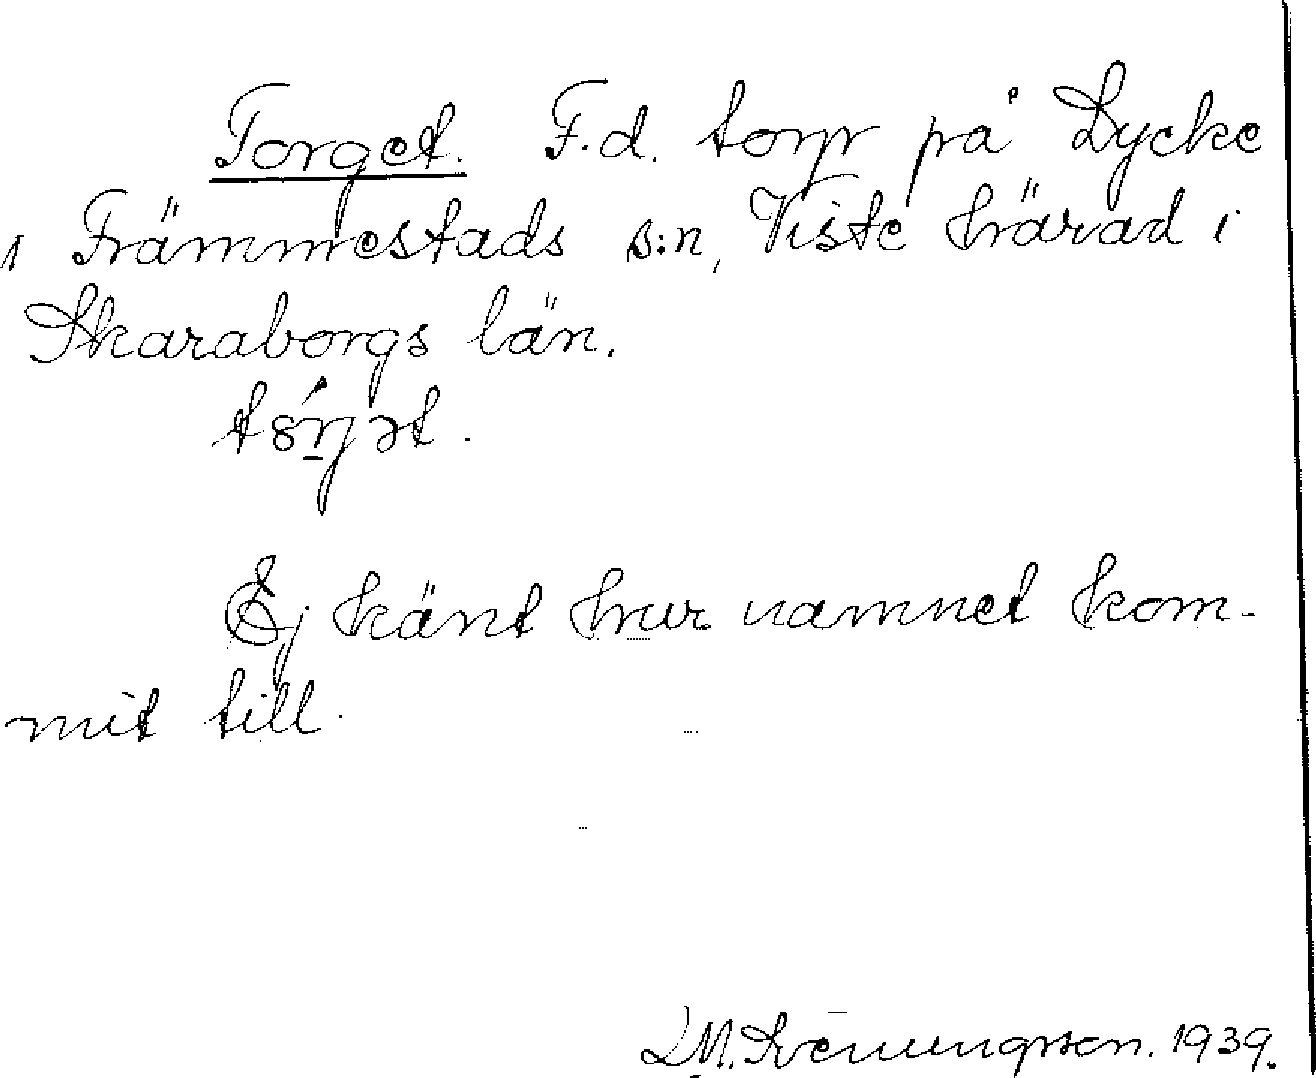 Torget. F.d. torp på Lycke
i Främmestads s:n, Viste härad i
Skaraborgs län.
Ej känt hur namnet kom-
mit till.
L M. Svenungsson. 1939.